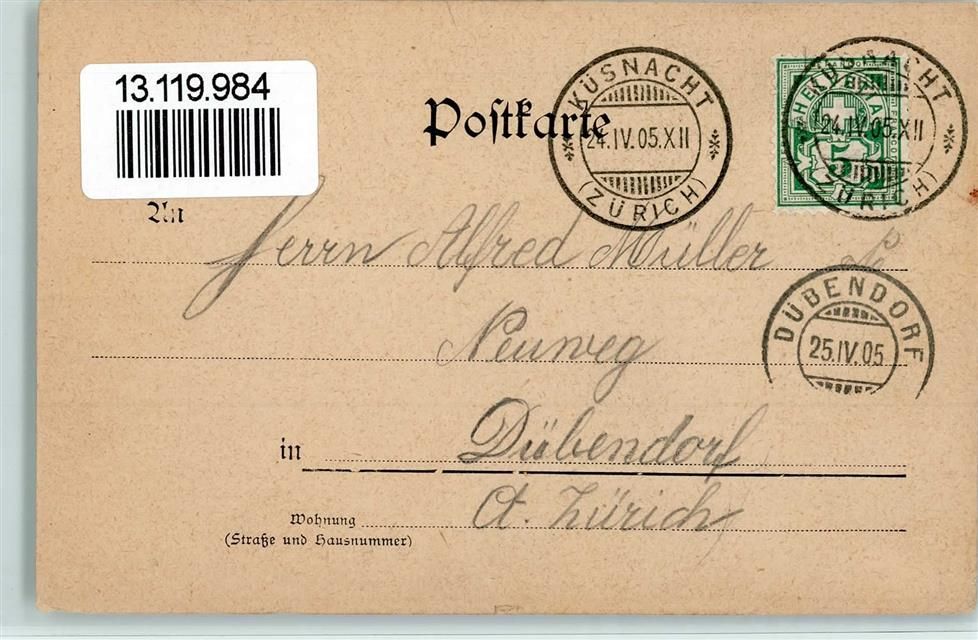 13.119.984
Postkarte
KÜSNACHT
24.IV.05.XII
(ZÜRICH)
HELVETIA
5
KÜSNACHT
24.IV.05.XII
(ZÜRICH)
An
Herrn Alfred Müller
DÜBENDORF
25.IV.05
Neuweg
in Dübendorf
Ct. Zürich
Wohnung
(Straße und Hausnummer)